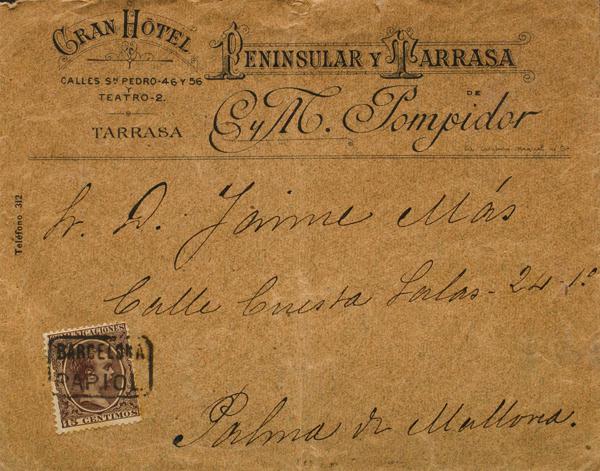 GRAN HÔTEL
CALLES Sn. PEDRO-46 Y 56
Y
TEATRO-2.
TARRASA
PENINSULAR Y TARRASA
DE
C y M. Pompidor
Teléfono 312
Sr. D. Jaime Más
Calle Cuesta Salas-24-1º
Palma de Mallorca.
COMUNICACIONES
BARCELONA
CAPIOL
15 CENTIMOS